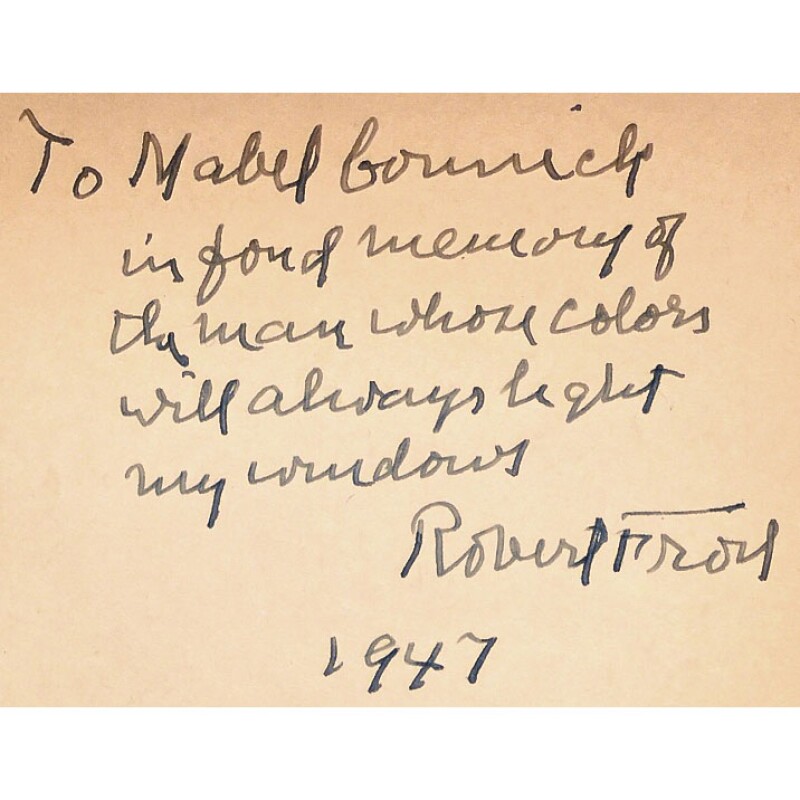 To Mabel
in fond memory of
the man whose colors
will always light
my windows
Robert Frost
1947